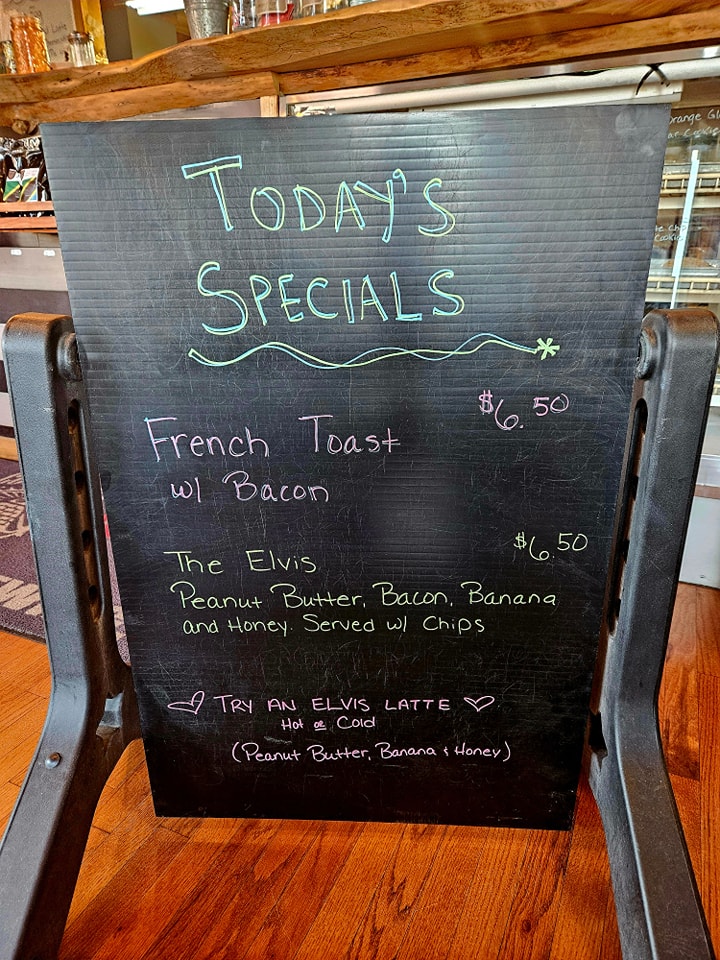 TODAY'S
SPECIALS
$6.50
French Toast
w/ Bacon
$6.50
The Elvis
Peanut Butter, Bacon, Banana
and Honey. Served w/ Chips
TRY AN ELVIS LATTE
Hot or Cold
(Peanut Butter, Banana & Honey)